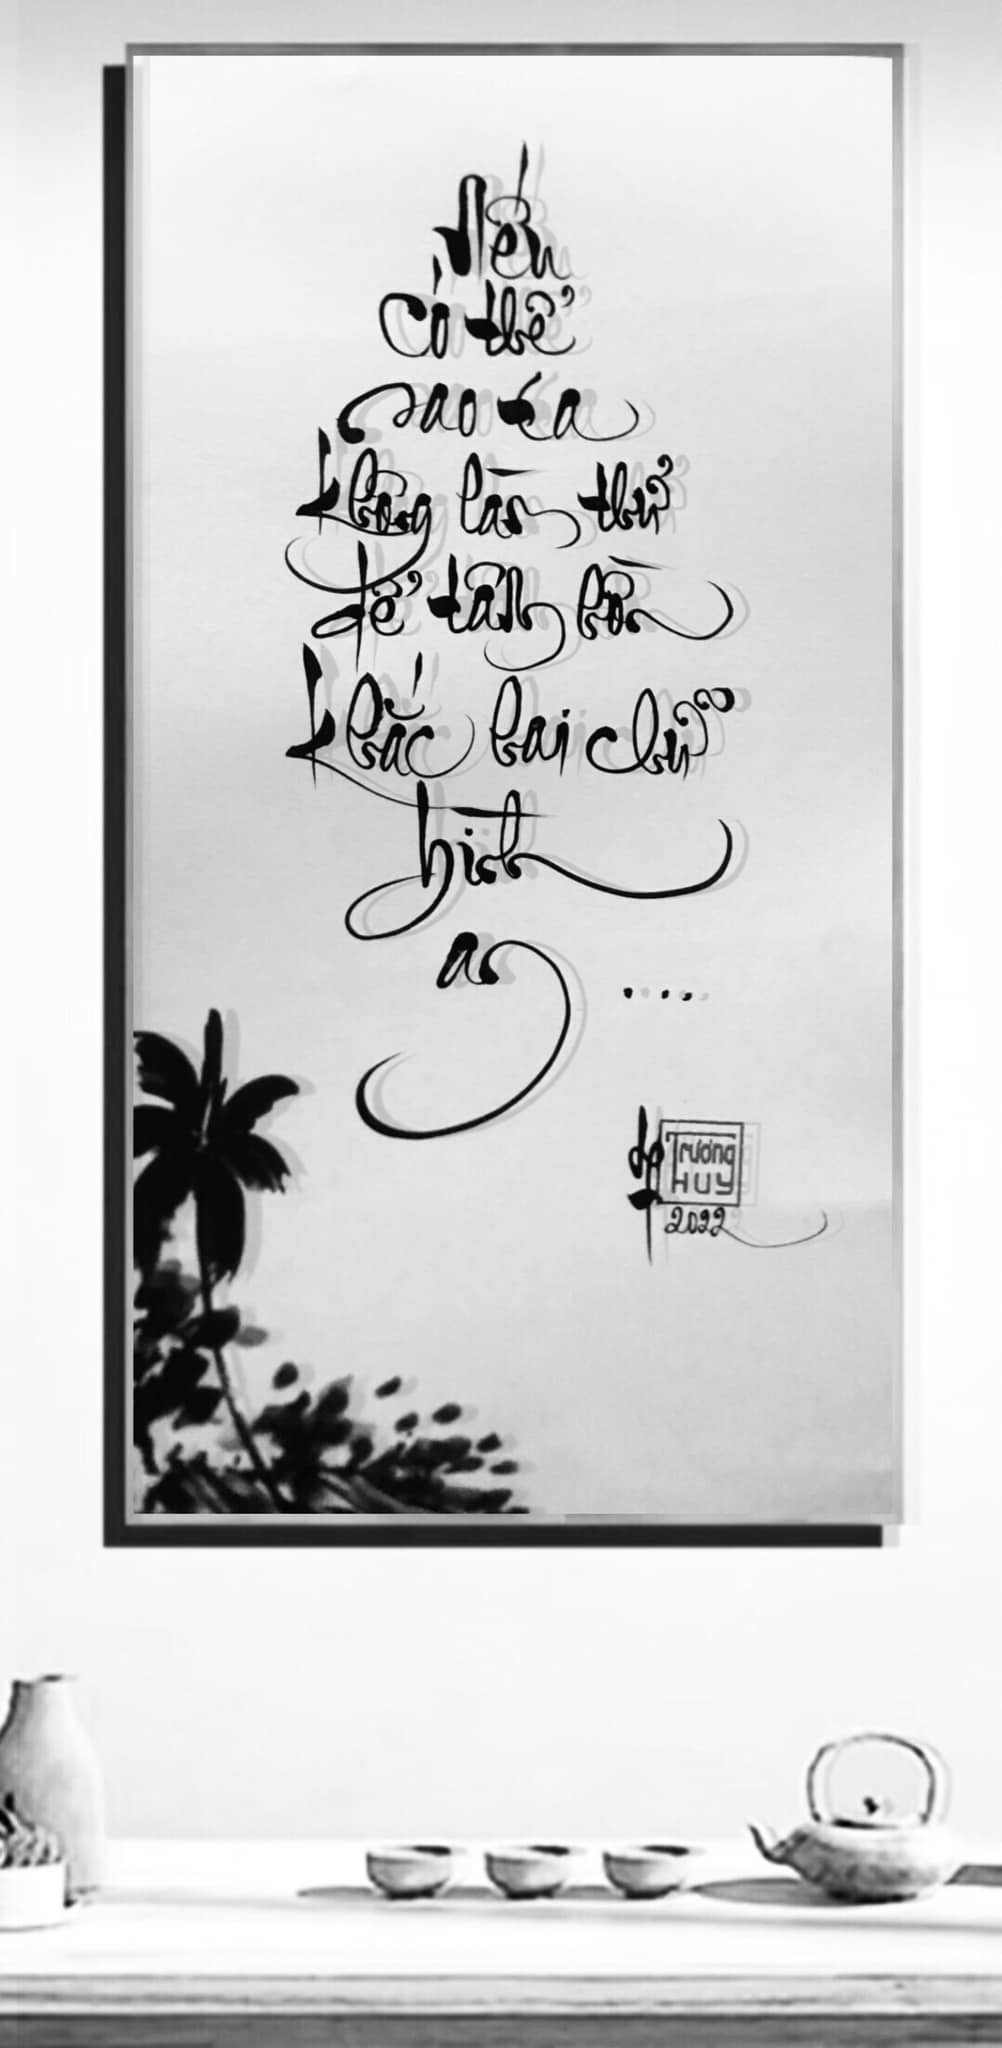 Nếu
có thể
sao ta
không làm thử
để tâm hồn
khắc hai chữ
bình
an .....
Trương
HUY
2022